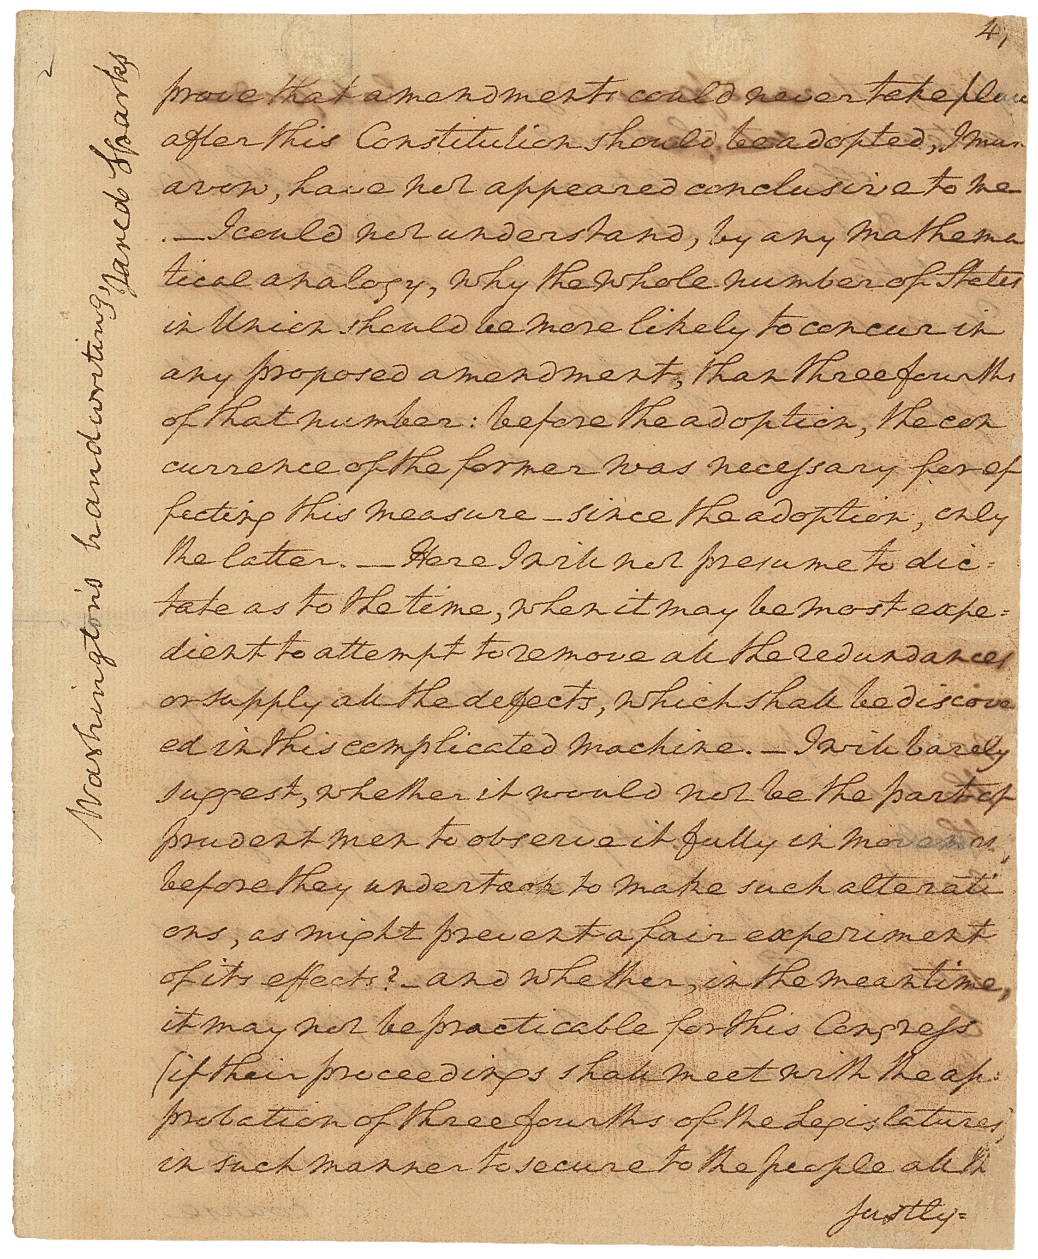 4,
prove that amendments could never take place
after this Constitution should be adopted, I mu
avow, have not appeared conclusive to me
. — I could not understand, by any mathema
tical analogy, why the whole number of States
in Union should be more likely to concur in
any proposed amendment, than three fourths
of that number: before the adoption, the con
currence of the former was necessary for ef
fecting this measure — since the adoption, only
the latter. — Here I will not presume to dic-
tate as to the time, when it may be most expe=
dient to attempt to remove all the redundances
or supply all the defects, which shall be discove
ed in this complicated machine. — I will barely
suggest, whether it would not be the part of
prudent men to observe it fully in movement,
before they undertook to make such alterati
ons, as might prevent a fair experiment
of its effects? — and whether, in the meantime,
it may not be practicable for this Congress
(if their proceedings shall meet with the ap-
probation of three fourths of the Legislatures)
in such manner to secure to the people all th
justly=
Washington's handwriting,
Jared Sparks